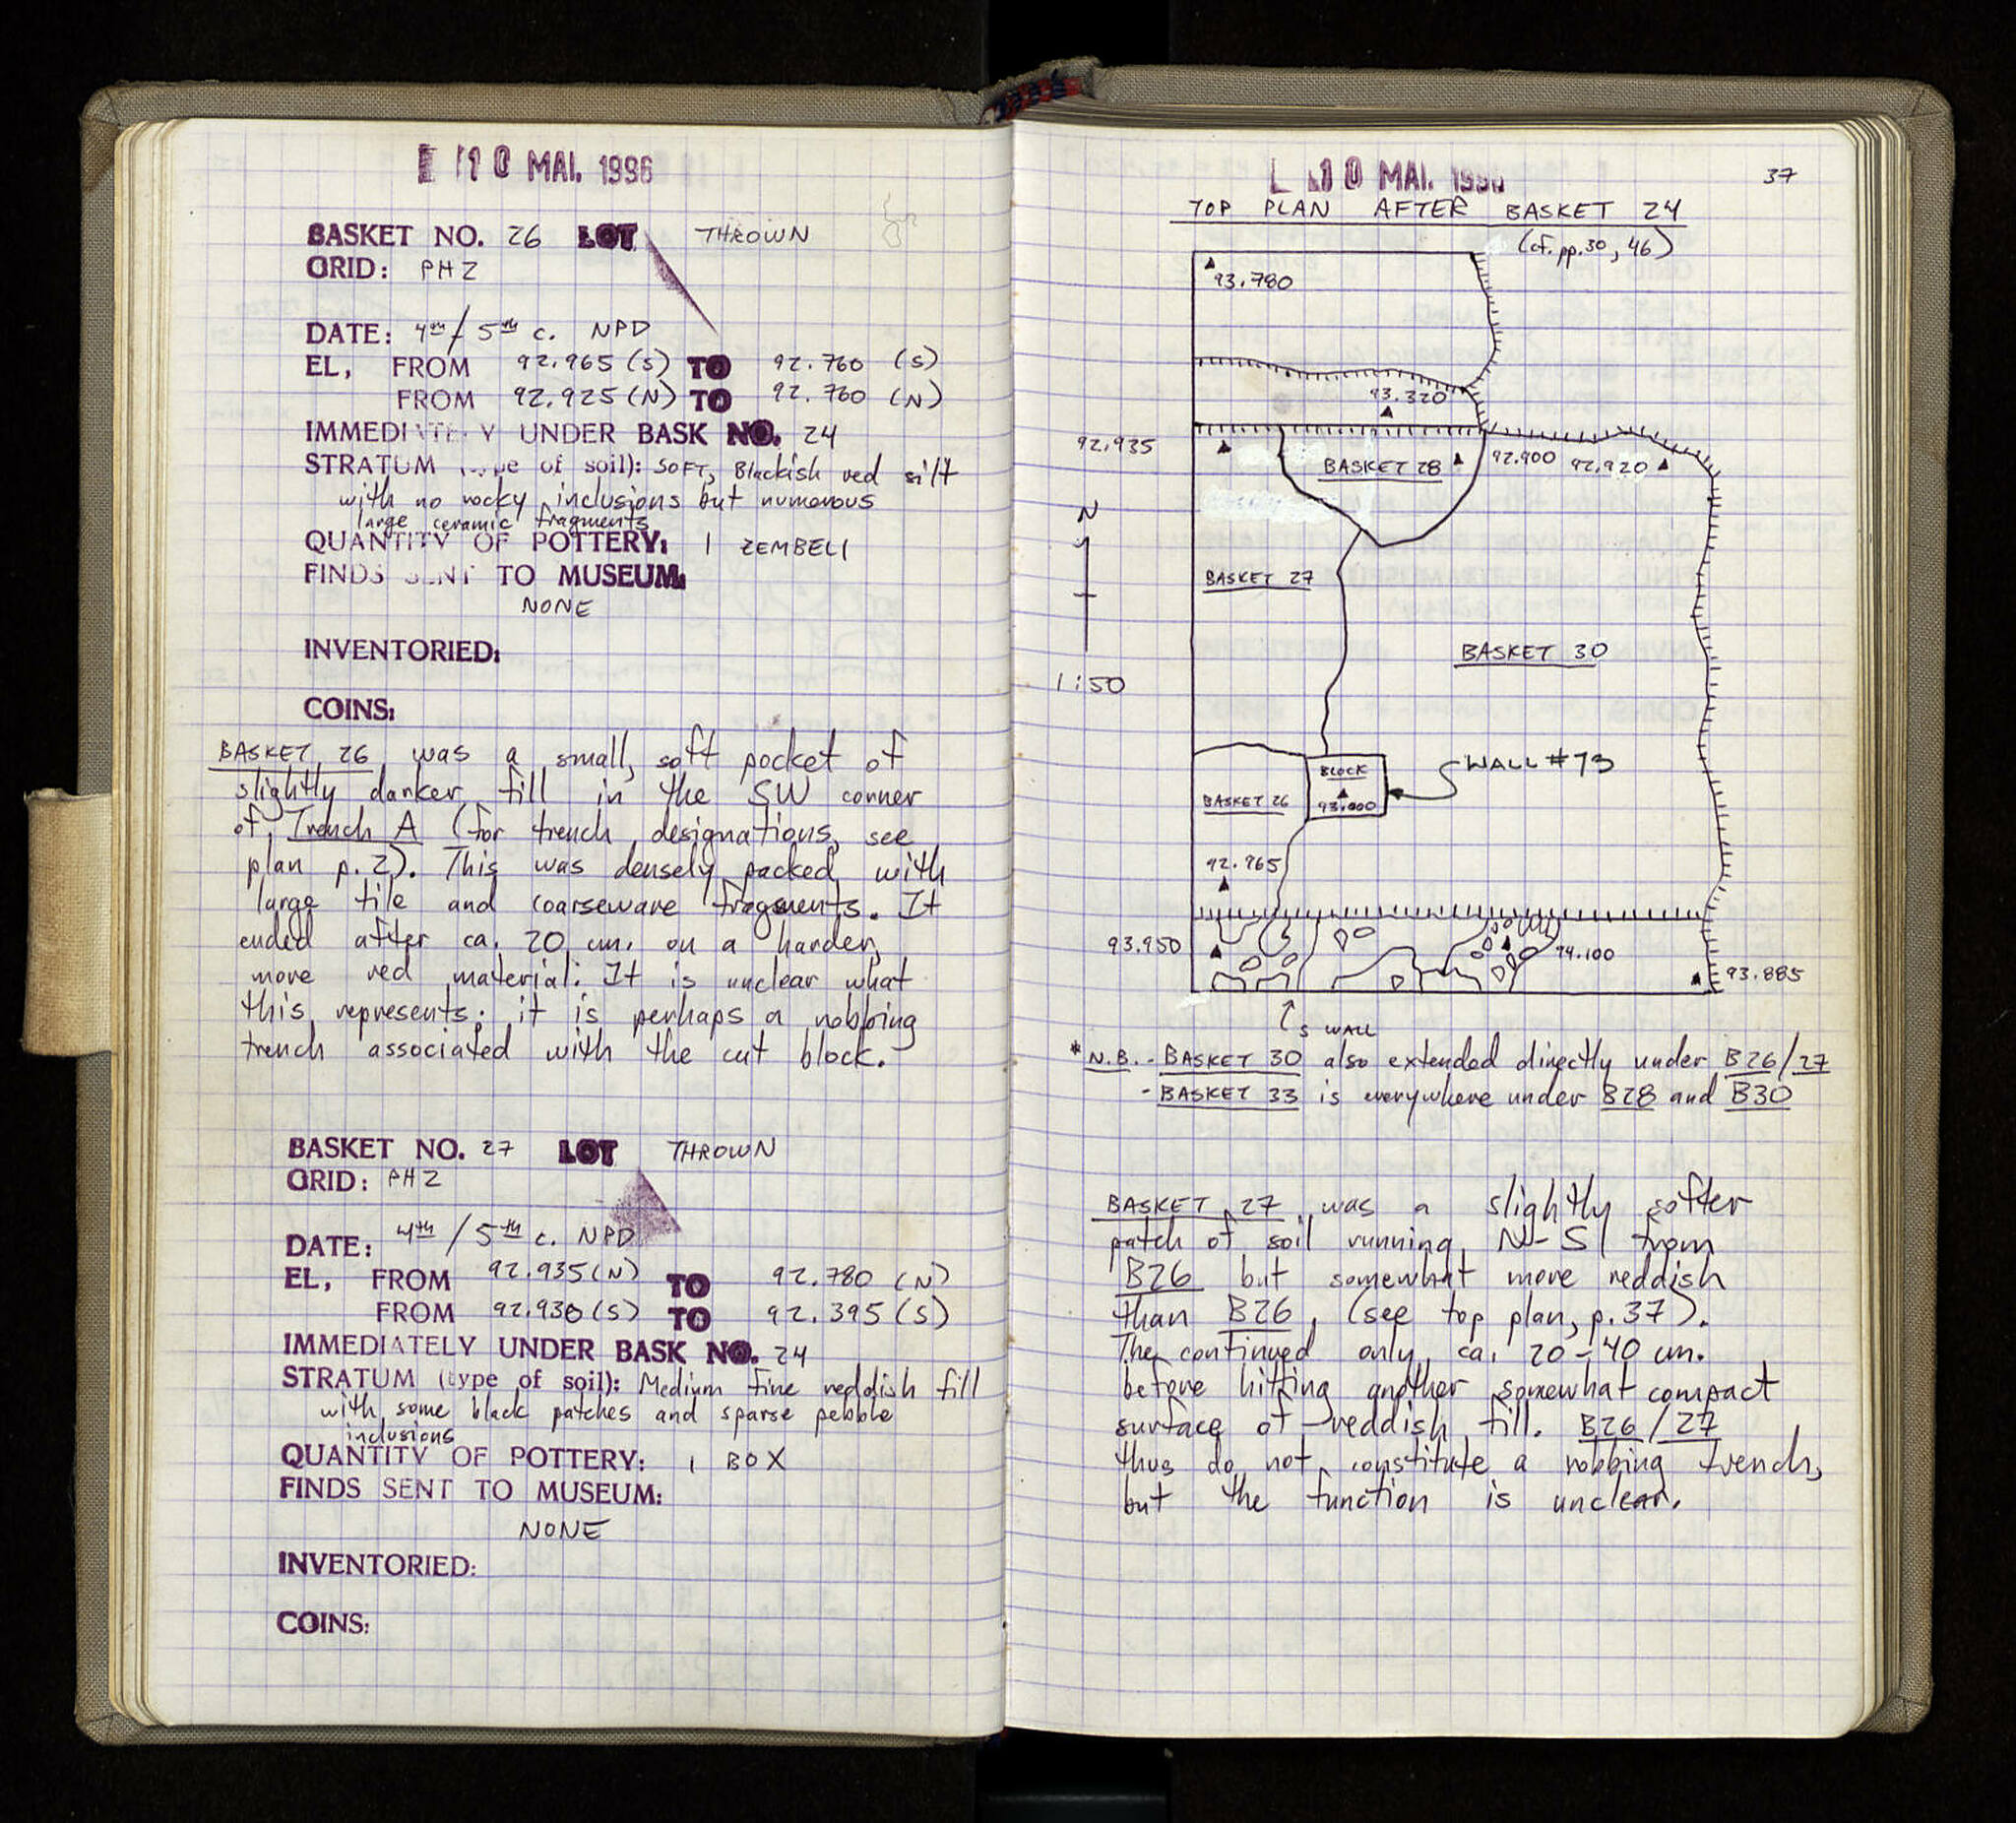 10 MAI. 1996
BASKET NO. 26 LOT THROWN
GRID: PHZ
DATE: 4th / 5th c. NPD
EL, FROM 92.965 (S) TO 92.760 (S)
FROM 92.925 (N) TO 92.760 (N)
IMMEDIATELY UNDER BASK NO. 24
STRATUM (type of soil): SOFT, Blackish red silt
with no rocky inclusions but numerous
large ceramic fragments
QUANTITY OF POTTERY: 1 ZEMBELI
FINDS SENT TO MUSEUM:
NONE
INVENTORIED:
COINS:
BASKET 26 was a small, soft pocket of
slightly darker fill in the SW corner
of Trench A (for trench designations, see
plan p. 2). This was densely packed with
large tile and coarseware fragments. It
ended after ca. 20 cm. on a harder,
more red material. It is unclear what
this represents; it is perhaps a robbing
trench associated with the cut block.
BASKET NO. 27 LOT THROWN
GRID: PHZ
DATE: 4th / 5th c. NPD
EL, FROM 92.935 (N) TO 92.780 (N)
FROM 92.930 (S) TO 92.395 (S)
IMMEDIATELY UNDER BASK NO. 24
STRATUM (type of soil): Medium fine reddish fill
with some black patches and sparse pebble
inclusions
QUANTITY OF POTTERY: 1 BOX
FINDS SENT TO MUSEUM:
NONE
INVENTORIED:
COINS:
10 MAI. 1996
37
TOP PLAN AFTER BASKET 24
(cf. pp. 30, 46)
93.780
93.320
92.935
BASKET 28
92.900
92.920
N
BASKET 27
BASKET 30
1:50
BLOCK
93.000
WALL #73
BASKET 26
92.965
93.950
94.100
93.885
S WALL
* N.B. - BASKET 30 also extended directly under B26/27
- BASKET 33 is everywhere under B28 and B30
BASKET 27 was a slightly softer
patch of soil running N-S from
B26 but somewhat more reddish
than B26 (see top plan, p. 37).
The continued only ca. 20-40 cm.
before hitting another somewhat compact
surface of reddish fill. B26/27
thus do not constitute a robbing trench,
but the function is unclear.